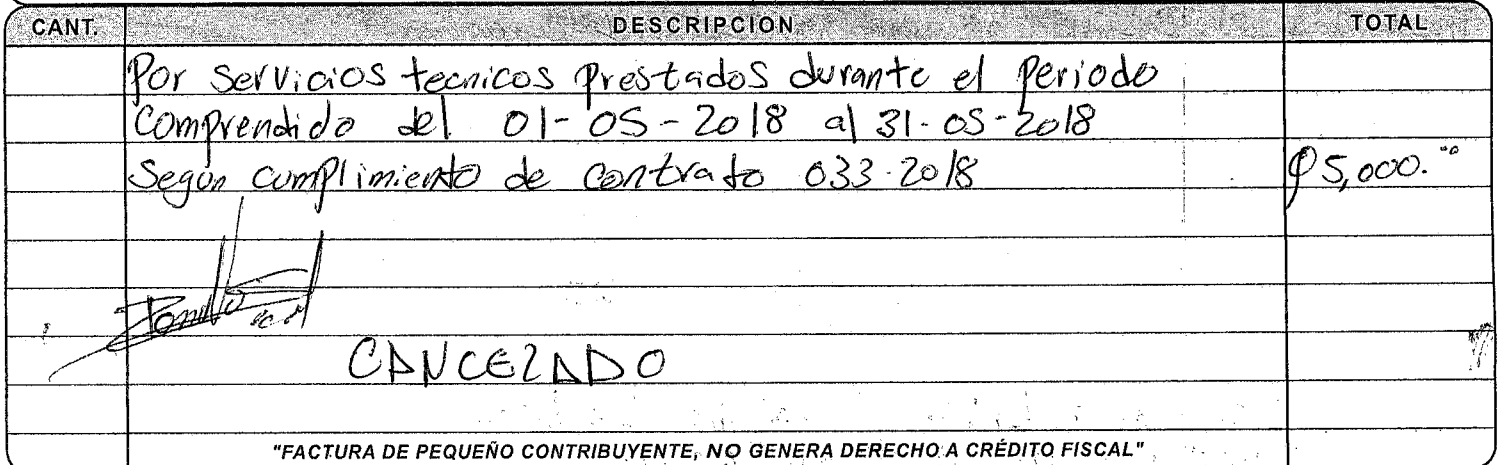 CANT. DESCRIPCION TOTAL
Por Servicios tecnicos Prestados durante el Periodo
Comprendido del 01-05-2018 al 31-05-2018
Según cumplimiento de contrato 033-2018 Q5,000.00
CANCELADO
"FACTURA DE PEQUEÑO CONTRIBUYENTE, NO GENERA DERECHO A CRÉDITO FISCAL"